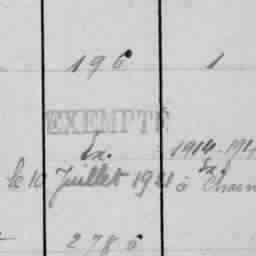 196 1
EXEMPTÉ
Ex. 1914-
le 10 Juillet 1921 à
278